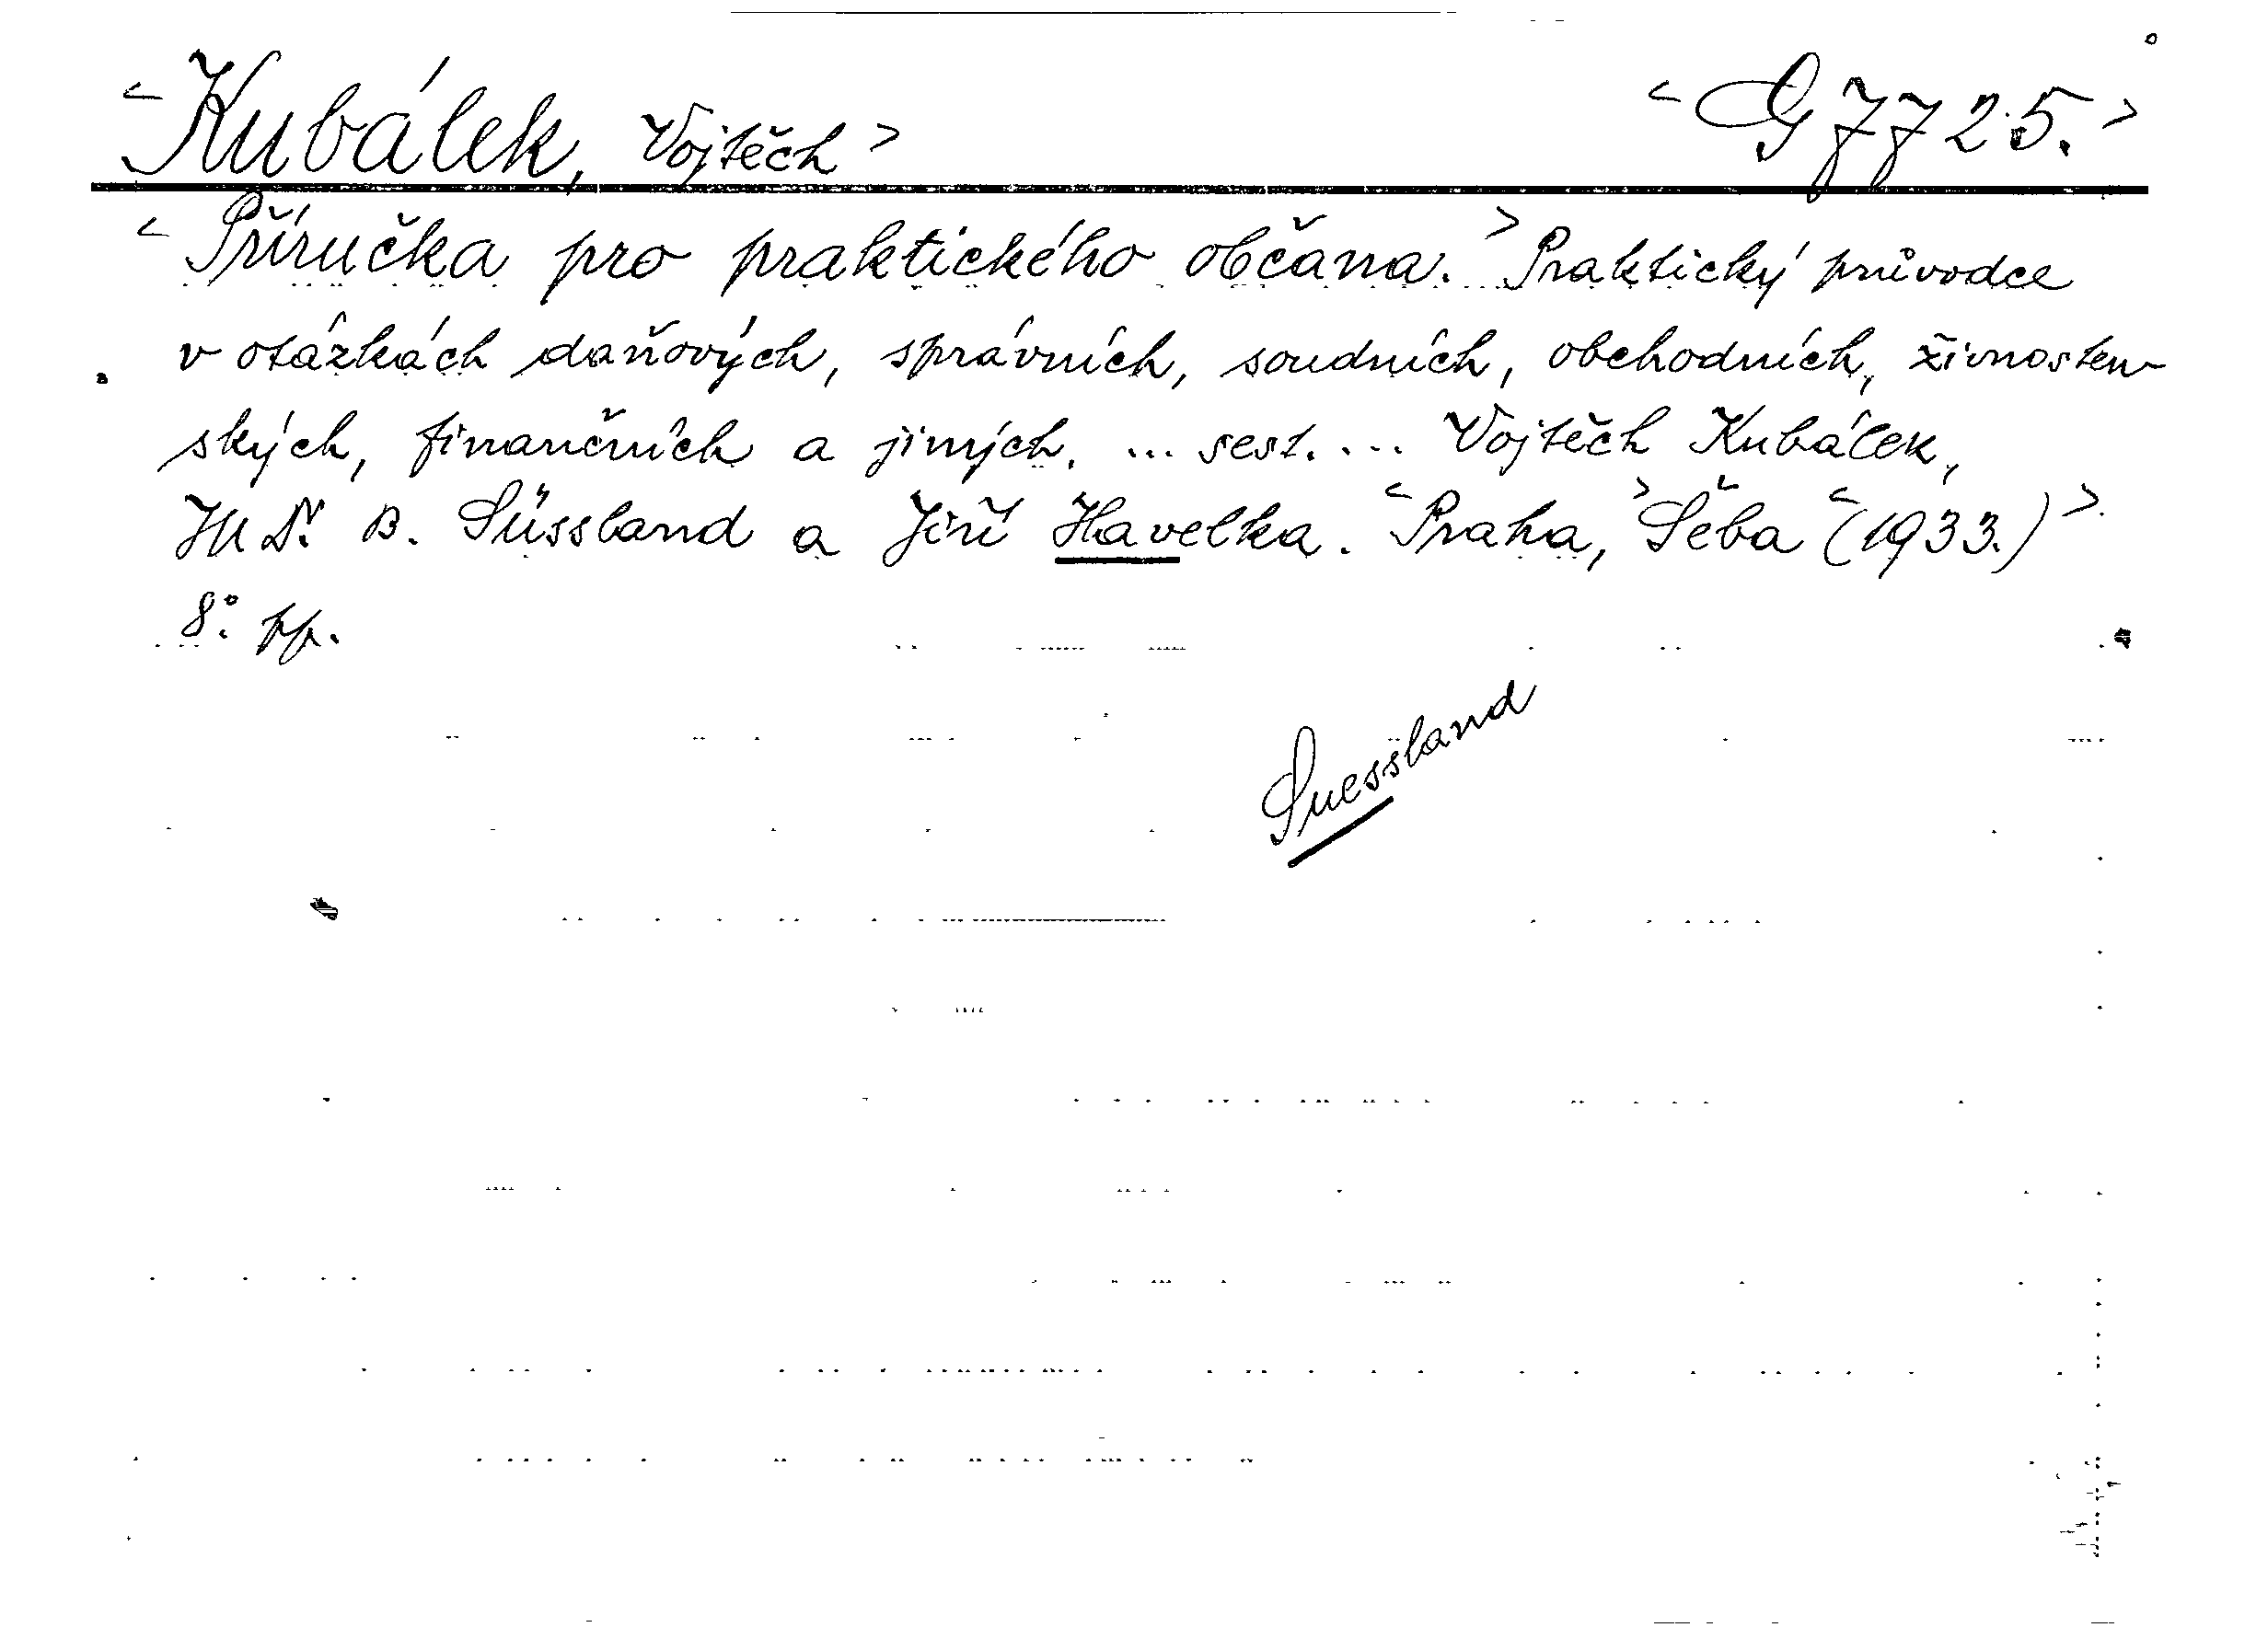 <Kubálek, Vojtěch> <G 7725.>
<Příručka pro praktického občana.> Praktický průvodce
v otázkách daňových, správních, soudních, obchodních, živnosten-
ských, finančních a jiných. ... sest. ... Vojtěch Kubálek,
B. Süssland a Jiří Havelka. <Praha,> Šeba <(1933.)>
8°. pp.
Suessland